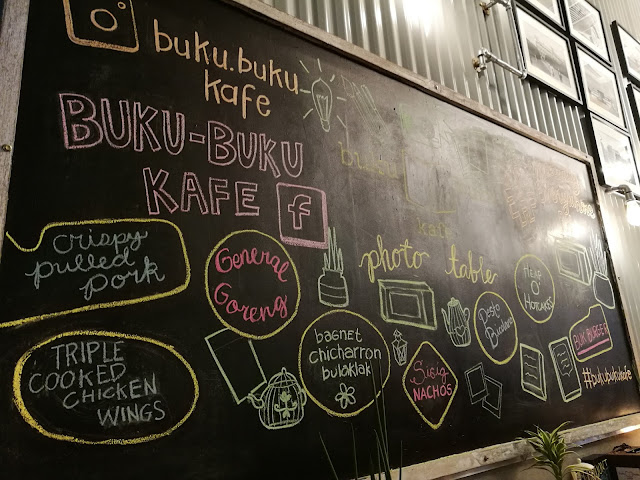 buku.buku
kafe
BUKU-BUKU
KAFE
f
crispy
pulled
pork
General
Goreng
photo table
TRIPLE
COOKED
CHICKEN
WINGS
bagnet
chicharron
bulaklak
Sisig
NACHOS
Pesto
HEAP
O'
HOTCAKES
BUK BURGER
#bukubukukafe